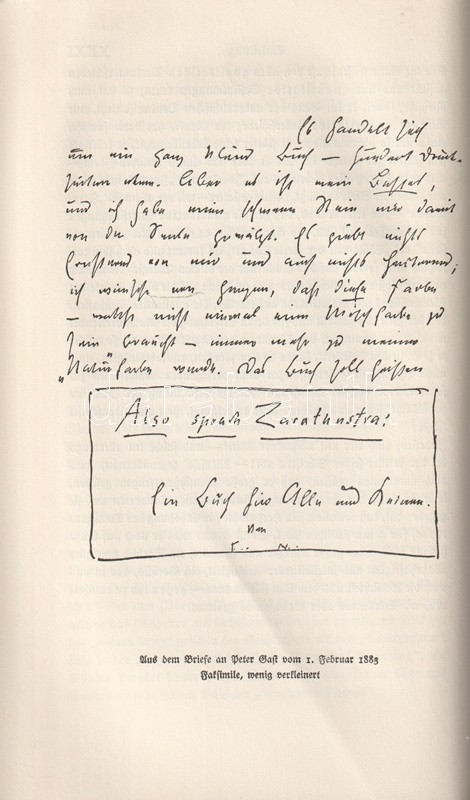 Es handelt sich
um ein ganz kleines Buch — hundert Druck-
seiten etwa. Aber es ist mein Bestes,
und ich habe einen schweren Stein mir damit
von der Seele gewälzt. Es giebt nichts
Ernsteres von mir und auch nichts Heitereres;
ich wünsche von Herzen, daß diese Farbe
— welche nicht einmal eine Mischfarbe zu
sein braucht — immer mehr zu meiner
„Natur"farbe werde. Das Buch soll heißen
Also sprach Zarathustra.
Ein Buch für Alle und Keinen.
Von
F. N.
Aus dem Briefe an Peter Gast vom 1. Februar 1883
Faksimile, wenig verkleinert